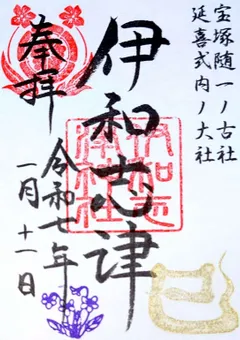 宝塚随一ノ古社
延喜式内ノ大社
伊和志津
奉拝
令和七年
一月十一日
伊和志津神社
巳